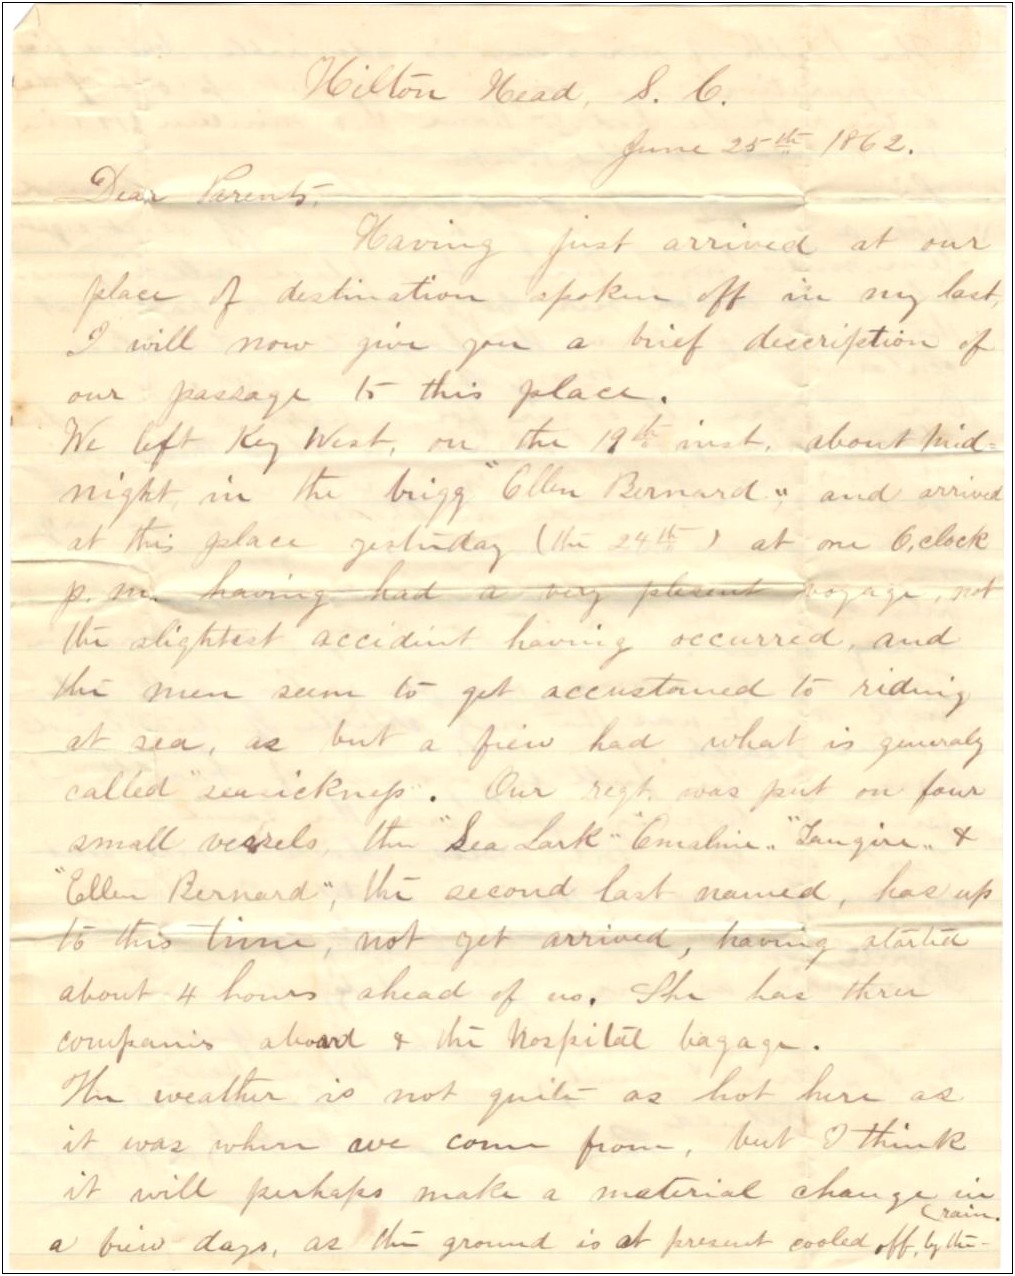 Hilton Head, S. C.
June 25th 1862.
Dear Parents,
Having just arrived at our
place of destination spoken off in my last,
I will now give you a brief description of
our passage to this place.
We left Key West, on the 19th inst. about Mid=
night, in the brigg "Ellen Bernard", and arrived
at this place yesterday (the 24th) at one O,clock
p. m. having had a very plesent voyage, not
the slightest accident having occurred, and
the men seem to get accustomed to riding
at sea, as but a few had what is generaly
called "seasickness". Our regt. was put on four
small vessels, the "Sea Lark" "Emeline" "Tangire" &
"Ellen Bernard", the second last named, has up
to this time, not yet arrived, having started
about 4 hours ahead of us. She has three
companies aboard & the Hospital bagage.
The weather is not quite as hot here as
it was where we come from, but I think
it will perhaps make a material change in
a few days, as the ground is at present cooled off, by the
(rain.